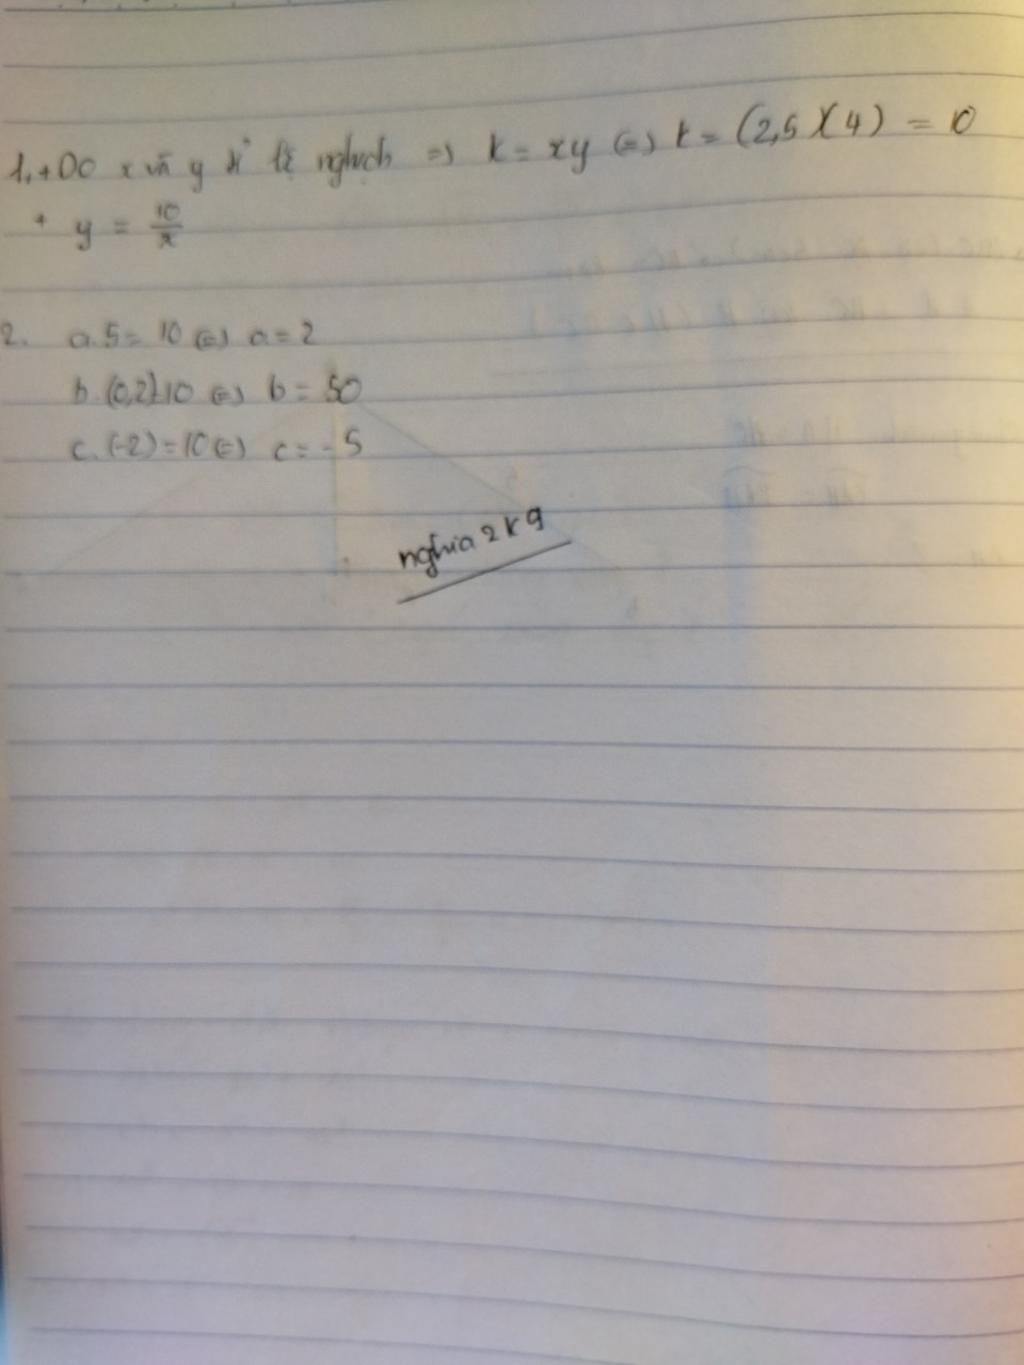 1. + Do x và y tỉ lệ nghịch => k = xy (=) k = (2,5)(4) = 10
+ y = 10/x
2. a.5 = 10 (=) a = 2
b.(0,2)=10 (=) b = 50
c.(-2) = 10 (=) c = -5
nghia 2k9